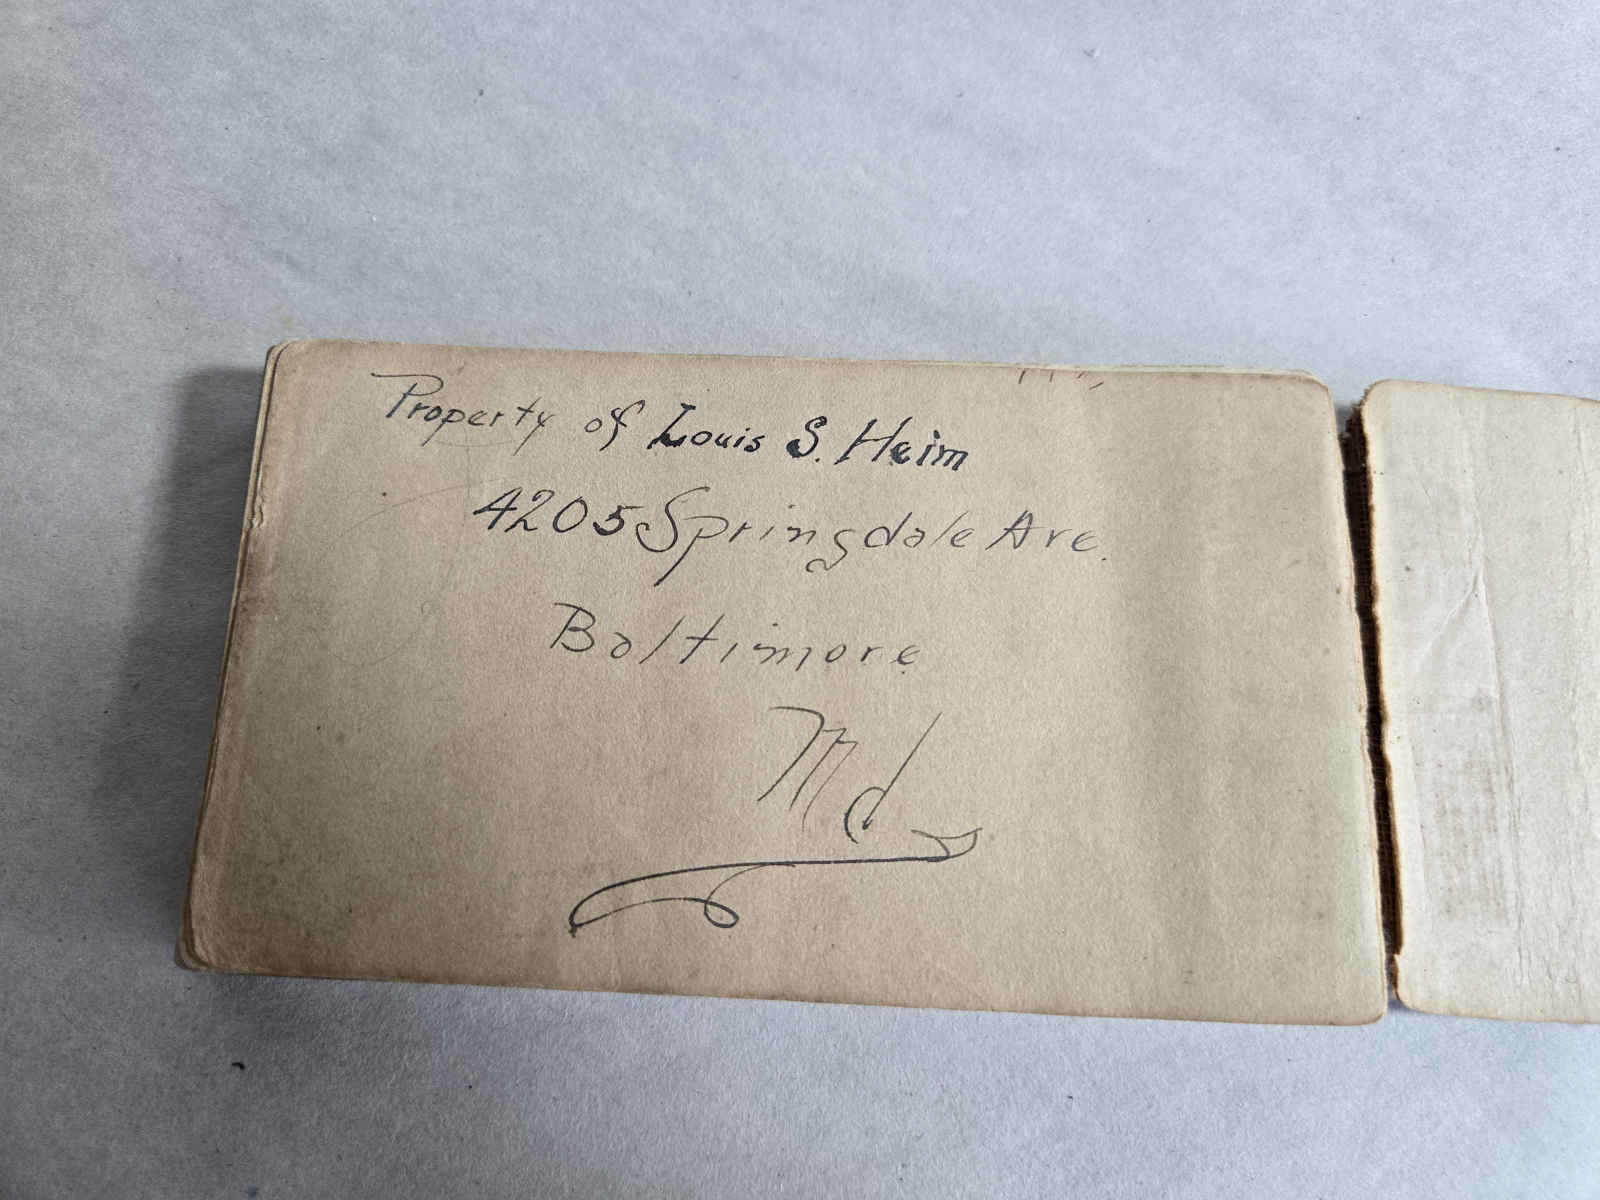 Property of Louis S. Heim
4205 Springdale Ave.
Baltimore
Md